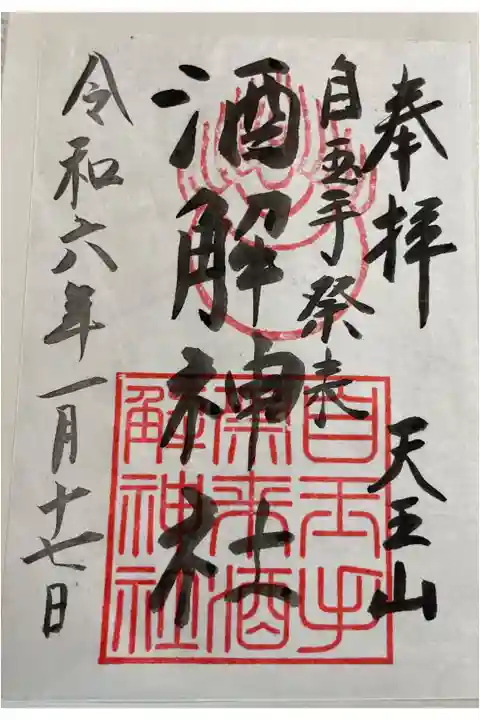 奉拝
天王山
自玉手祭来
酒解神社
令和六年一月十七日
自玉手
祭来酒
解神社